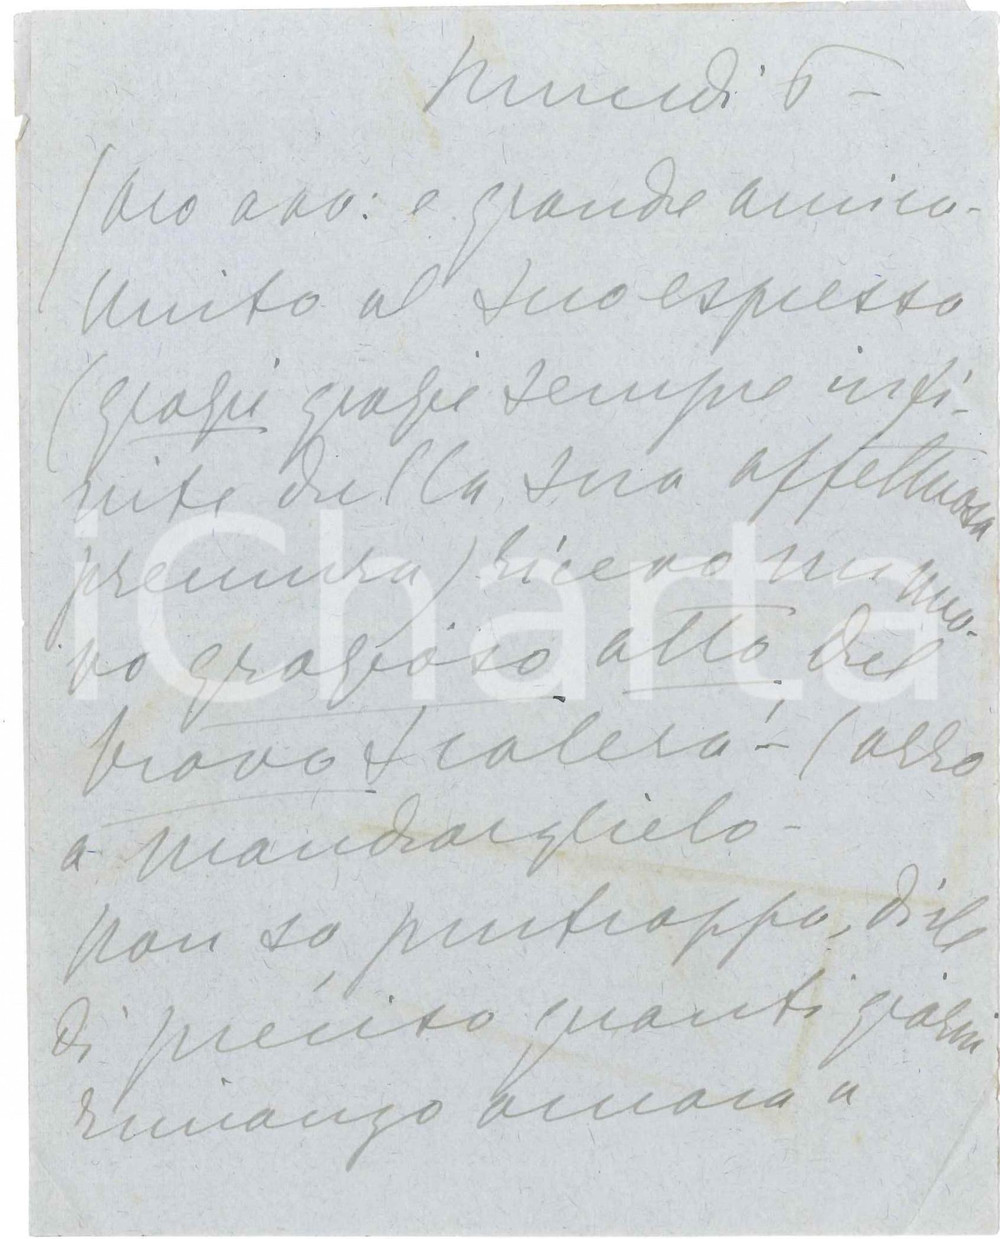 lunedì 6 -
Caro avv: e grande amico -
Unito al suo espresso
(grazie grazie sempre infi-
nite della sua affettuosa
premura) ricevo un nuo-
vo grazioso atto del
bravo Scalera - (
a
Non so, purtroppo, dirle
di preciso quanti giorni
rimango ancora a
iCharta